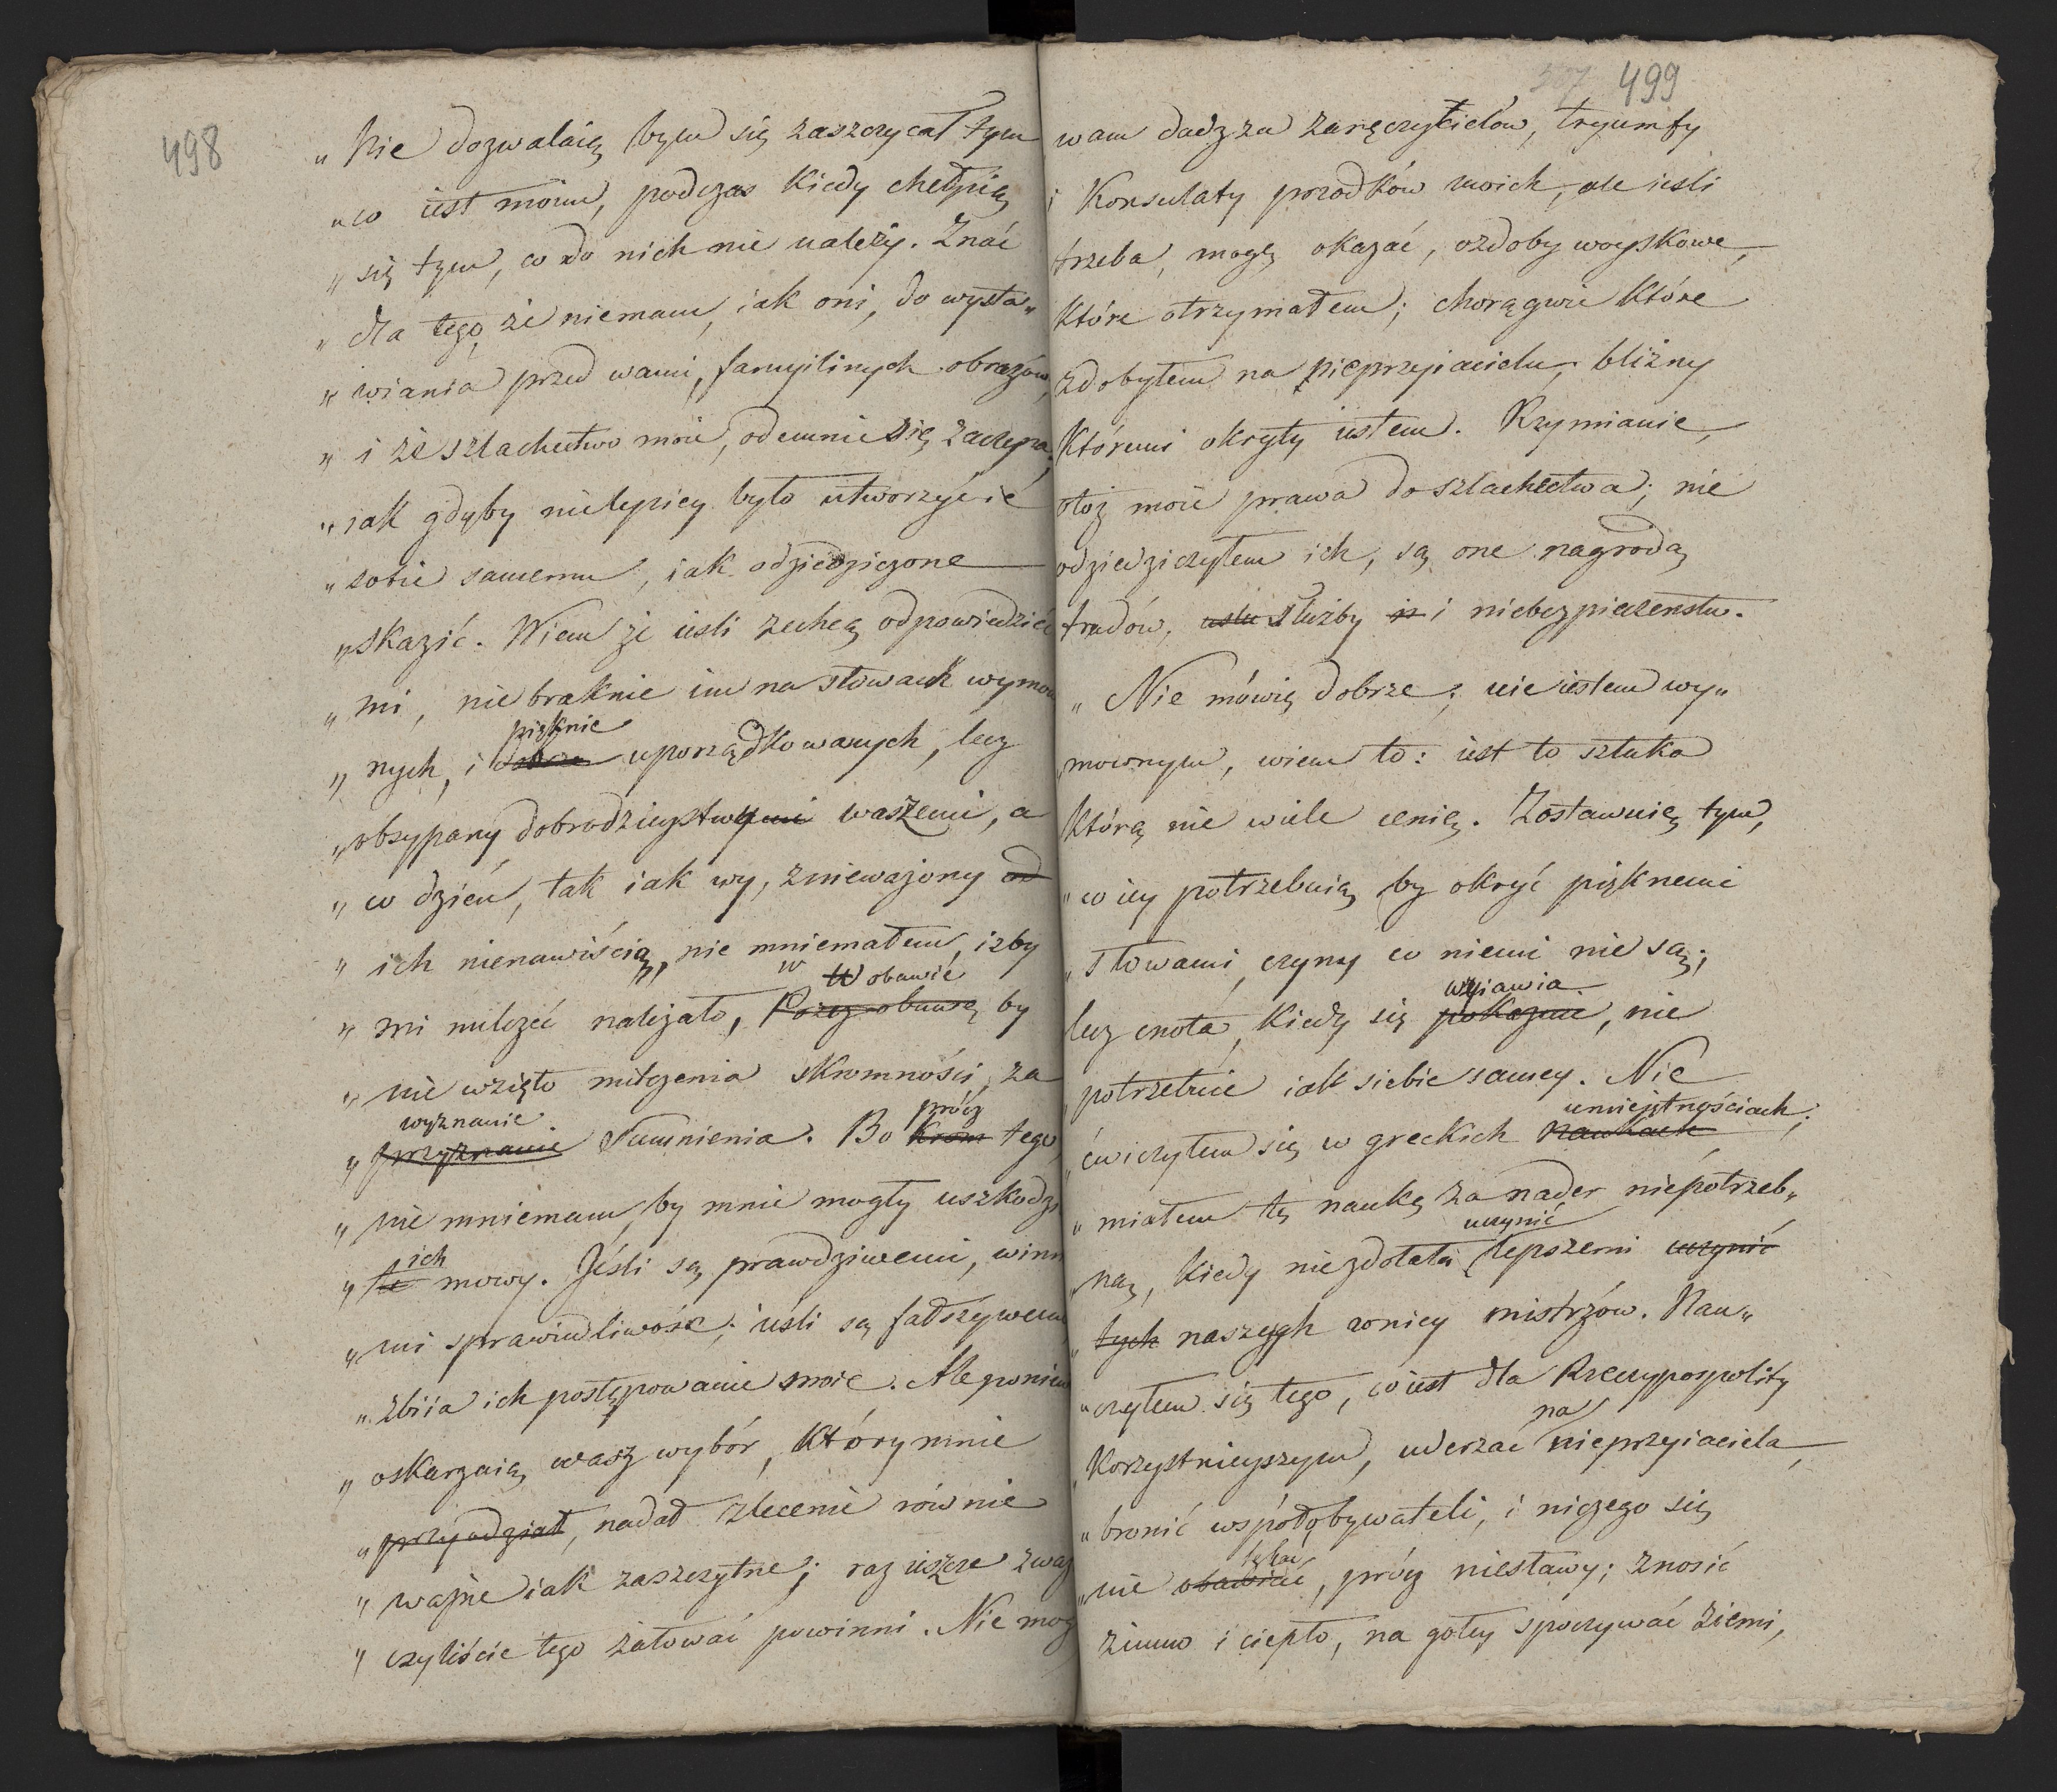 498
„ Nie dozwalaią bym się zaszczycał tym
„ co iest moim, podczas kiedy chełpią
„ się tym, co do nich nie należy. Znać
„ dla tego, że niemam, iak oni, do wysta„
„ wiania przed wami, familiinych obrazów,
„ i że szlachectwo moie, odemnie się zaczyna,
„ iak gdyby nielepiey było utworzyć ie
„ sobie samemu, iak odziedziczone
„ skazić. Wiem że iesli zechcą odpowiedzieć
„ mi, nie braknie im na słowach wymow
pięknie
„ nych, i dobrze uporządkowanych, lecz
„ obsypany dobrodzieystwy waszemi, a
„ co dzień, tak iak wy, znieważony od
„ ich nienawiścią, nie mniemałem, iżby
w obawie
„ mi milczeć należało, by
„ nie wzięto milczenia skromności, za
wyznanie prócz
„ przyznanie sumnienia. Bo krom tego,
„ nie mniemam, by mnie mogły uszkodzi
ich
„ te mowy. Jeśli są prawdziwemi, winn
„ mi sprawiedliwość; iesli są fałszywemi
„ zbiia ich postępowanie moie. Ale poniew
„ oskarzaią wasz wybór, który mnie
„ przyodział, nadał zlecenie równie
„ ważne iak zaszczytne; raz ieszcze zwaz
„ czyliście tego załować powinni. Nie mog
507 499
wam dadz za zaręczycielów, tryumfy
i Konsulaty przodków moich, ale iesli
trzeba, mogę okazać, ozdoby woyskowe,
które otrzymałem; chorągwie które
zdobyłem na nieprzyiacielu, blizny
któremi okryty iestem. Rzymianie,
otoż moie prawa do szlachectwa; nie
odziedziczyłem ich, są one nagrodą
trudów, usłu służby i niebezpieczenstw.
„ Nie mówię dobrze; nie iestem wy„
„ mownym, wiem to: iest to sztuka
którą nie wiele cenię. Zostawuię tym,
„ co iey potrzebuią by okryć pięknemi
„ słowami, czyny co niemi nie są;
wyiawia
lecz cnota, kiedy się pokazuie, nie
„ potrzebuie iak siebie samey. Nie
umieiętnościach;
„ ćwiczyłem się w greckich naukach
„ miałem tę naukę za nader niepotrzeb„
uczynić
„ ną, kiedy niezdołała lepszemi uczynić
„ tych naszych w niey mistrzów. Nau„
„ czyłem się tego, co iest dla Rzeczypospolity
na
„ korzystnieyszym, uderzać nieprzyiaciela,
„ bronić współobywateli, i niczego się
lękać
„ nie obawiać, prócz niesławy; znosić
zimno i ciepło, na gołey spoczywać ziemi,